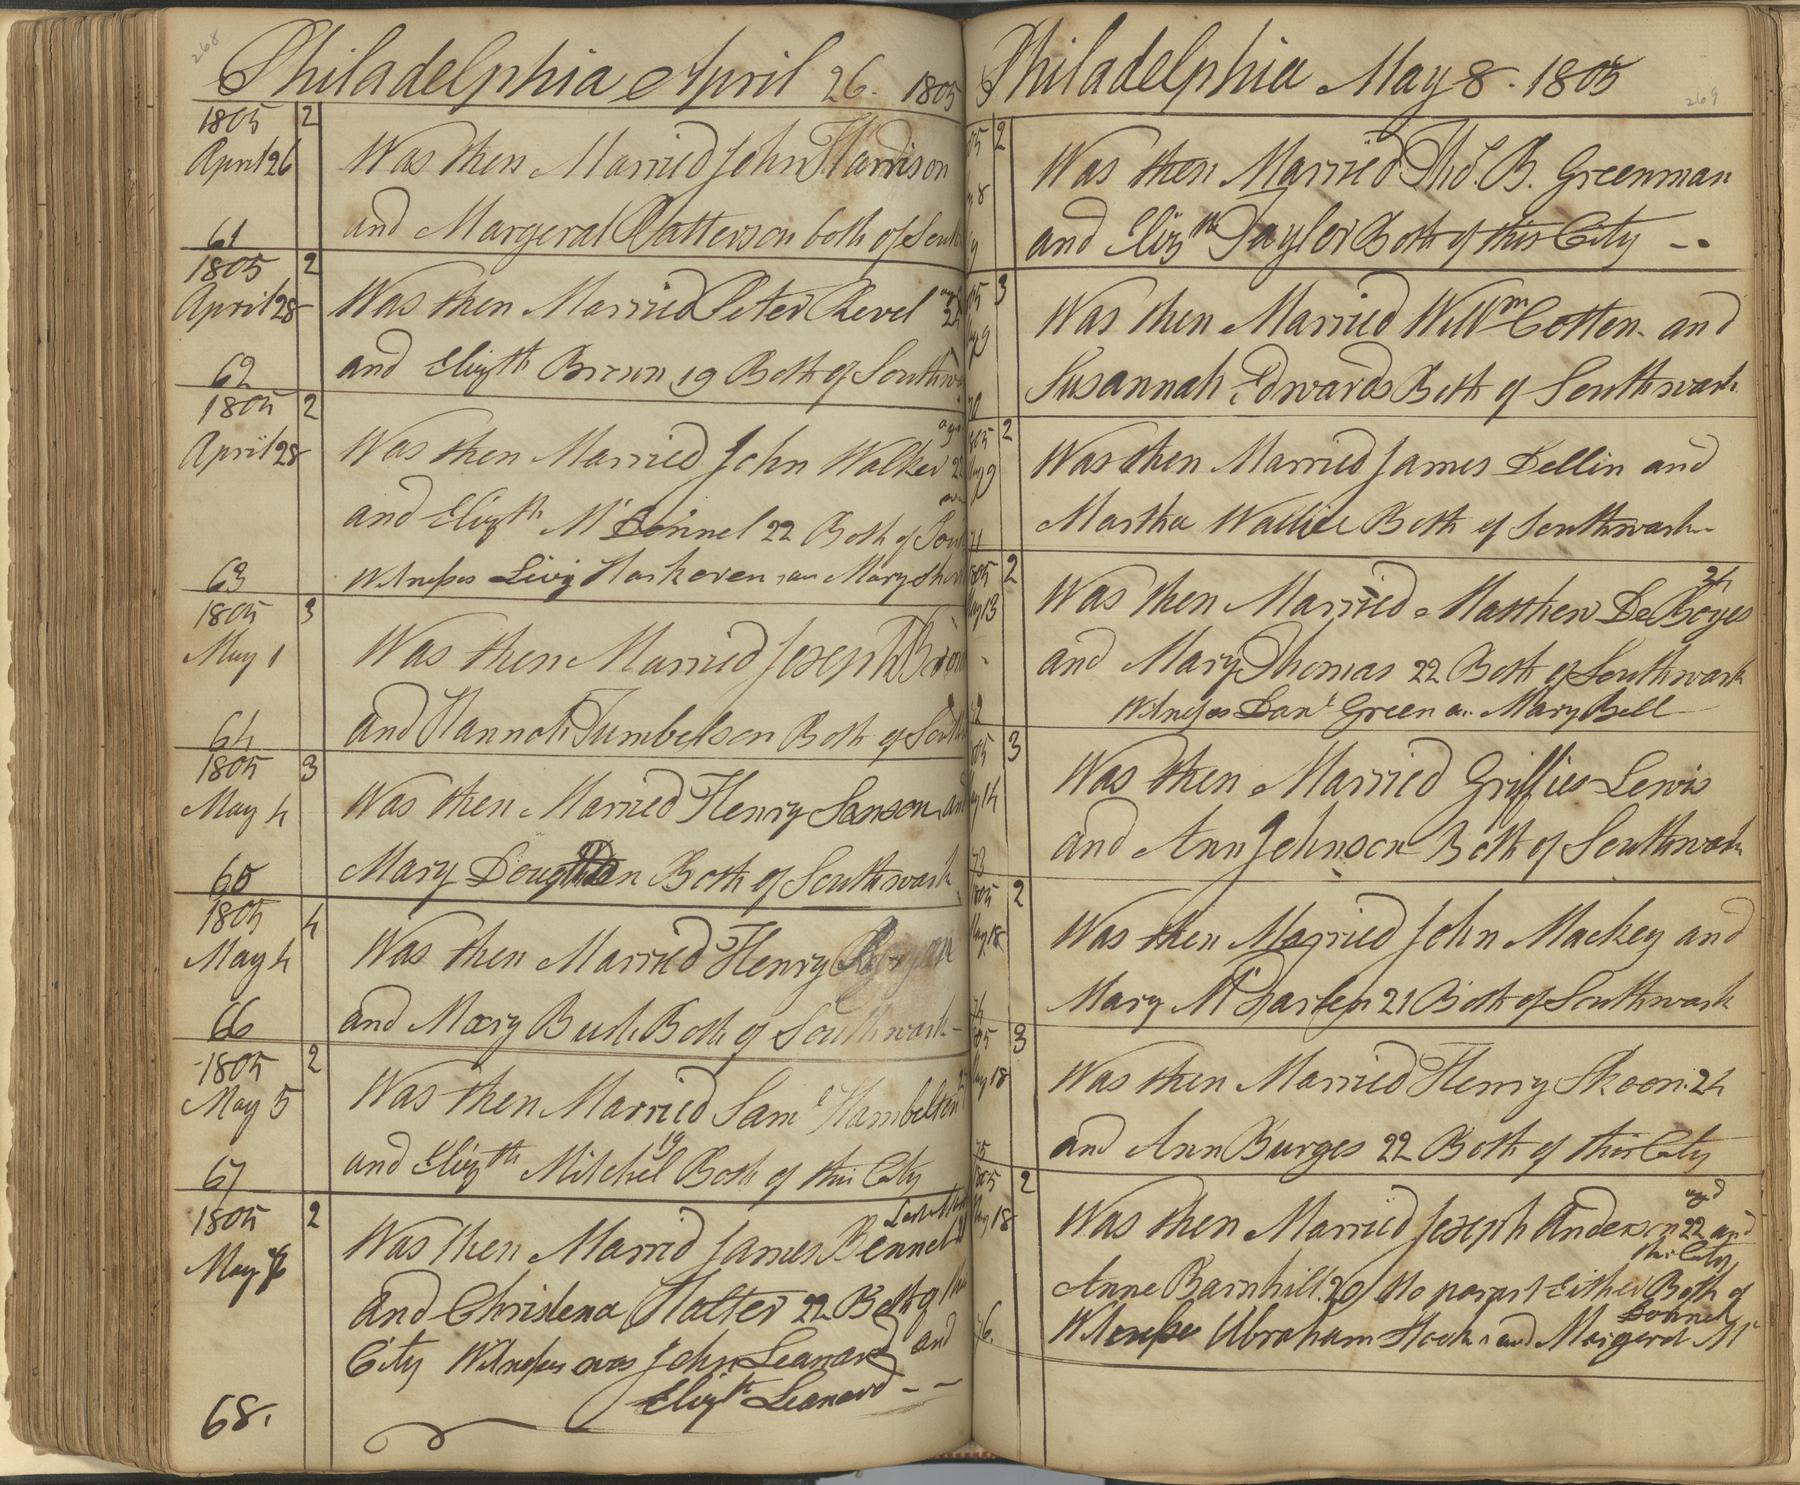 268
Philadelphia April 26. 1805
1805 2
April 26 Was then Married John Hardison
61 and Margerat Patterson both of South
1805 2
April 28 Was then Married Peter Revel
62 and Elizth Brown 19 Both of Southw
1805 2
April 28 Was then Married John Walker
and Elizth Mc Donnel 22 Both of Sou
63 Witnesses Mary
1805 3
May 1 Was then Married Joseph Brow
64 and Hannah Tumbelson Both of South
1805 3
May 4 Was then Married Henry Sanson and
65 Mary Both of Southwark
1805 4
May 4 Was then Married Henry
66 and Mary Bush Both of Southwark
1805 2
May 5 Was then Married Saml Hambelton
19
67 and Elizth Mitchel Both of this City
1805 2
May Was then Married James Bennel
and Christena Halter 22 Both of this
City Witnesses was John Leanard and
Elizth Leanard - -
68.
269
Philadelphia May 8. 1805
05 2
8 Was then Married Thos. B. Greenman
9 and Elizth Taylor Both of this City - .
05 3
9 Was then Married Willm Cotten and
70 Susannah Edwards Both of Southwark
805 2
9 Was then Married James Dellin and
71 Martha Both of Southwark
1805 2
24
May 13 Was then Married Matthew De Boyes
and Mary Thomas 22 Both of Southwark
72 Witnesses Danl Green an Mary Bell
05 3
14 Was then Married Griffies Lewis
73 and Ann Johnson Both of Southwark
1805 2
May 18 Was then Married John Mackey and
74 Mary Mc 21 Both of Southwark
805 3
May 18 Was then Married Henry Skoon 24
75 and Ann Burges 22 Both of this City
1805 2
aged
May 18 Was then Married Joseph Anderson 22 and
this City
Anne Barnhill 20 No parent Either Both of
Donnel
76. Witnesses Abraham and Margerat Mc